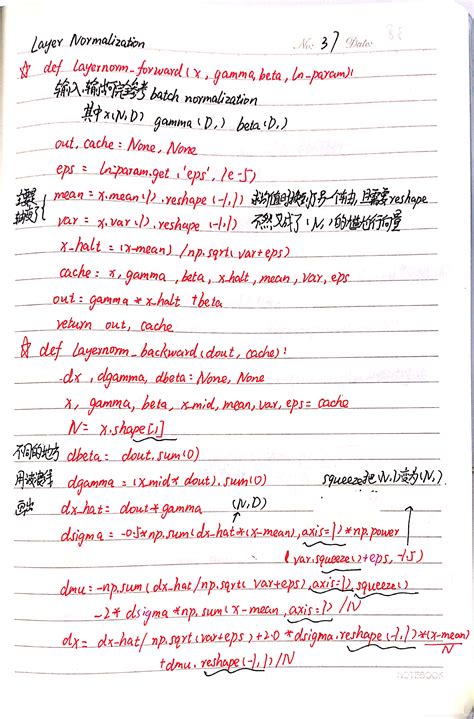 Layer Normalization
No: 37 Date:
☆ def layernorm_forward(x, gamma, beta, ln-param):
输入,输出可完全参考 batch normalization
其中 x(N,D) gamma(D,) beta(D,)
out, cache = None, None
eps = ln-param.get('eps', 1e-5)
mean = x.mean(1).reshape(-1,1)
var = x.var(1).reshape(-1,1)
x_halt = (x-mean) / np.sqrt(var+eps)
cache = x, gamma, beta, x_halt, mean, var, eps
out = gamma * x_halt + beta
return out, cache
☆ def layernorm_backward(dout, cache):
dx, dgamma, dbeta = None, None
x, gamma, beta, x_mid, mean, var, eps = cache
N = x.shape[1]
不同的地方 dbeta = dout.sum(0)
用波浪线 dgamma = (x_mid * dout).sum(0) squeeze把(N,1)变为(N,)
画出 dx_hat = dout*gamma (N,D)
dsigma = -0.5*np.sum(dx_hat*(x-mean),axis=1)*np.power
(var.squeeze()+eps, -1.5)
dmu = -np.sum(dx_hat/np.sqrt(var+eps),axis=1).squeeze()
-2* dsigma *np.sum(x-mean,axis=1) /N
dx = dx_hat/np.sqrt(var+eps)+2.0*dsigma.reshape(-1,1)*(x-mean)/N
+dmu.reshape(-1,1)/N
NOTEBOOK